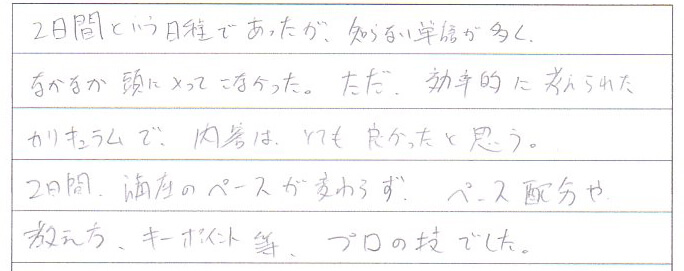 2日間という日程であったが、知らない単語が多く、
なかなか頭に入ってこなかった。ただ、効率的に考えられた
カリキュラムで、内容は、とても良かったと思う。
2日間、講座のペースが変わらず、ペース配分や
教え方、キーポイント等、プロの技でした。